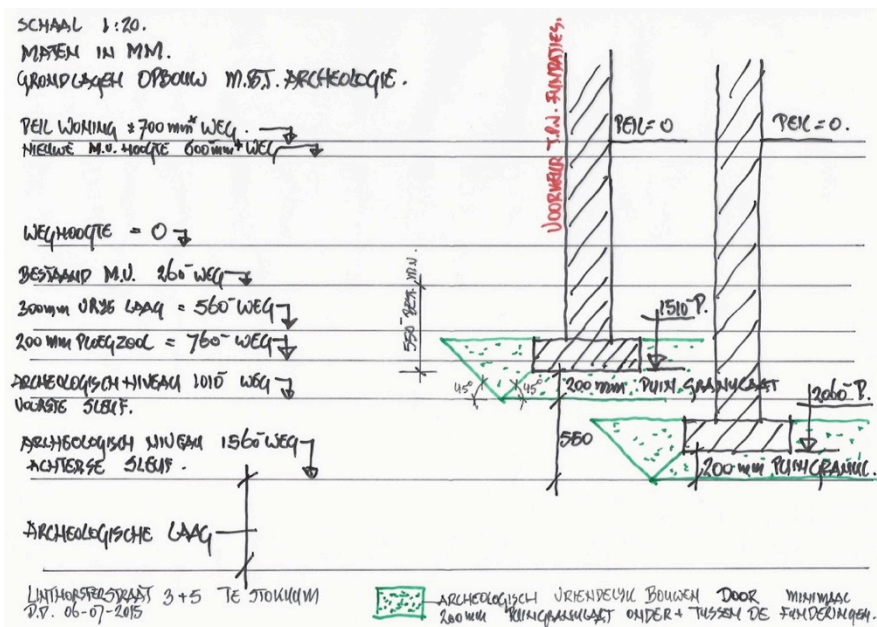 SCHAAL 1:20.
MATEN IN MM.
GRONDLAGEN OPBOUW M.B.T. ARCHEOLOGIE.
PEIL WONING ± 700 mm⁺ WEG.
NIEUWE M.V. HOOGTE 600 mm⁺ WEG
WEGHOOGTE = 0
BESTAAND M.V. 260⁻ WEG
300mm VRIJE LAAG = 560⁻ WEG
200 mm PLOEGZOOL = 760⁻ WEG
ARCHEOLOGISCH NIVEAU 1010⁻ WEG
VOORSTE SLEUF.
ARCHEOLOGISCH NIVEAU 1560⁻ WEG
ACHTERSE SLEUF.
ARCHEOLOGISCHE LAAG
VOORKEUR T.P.V. FUNDATIES.
PEIL=0
PEIL=0.
550⁻ BEST. M.V.
1510⁻ P.
45°
45°
200 mm PUIN GRANULAAT
2060⁻ P.
550
200 mm PUINGRANUL.
LINTHORSTERSTRAAT 3+5 TE STOKKUM
D.D. 06-07-2015
ARCHEOLOGISCH VRIENDELIJK BOUWEN DOOR MINIMAAL
200mm PUINGRANULAAT ONDER + TUSSEN DE FUNDERINGEN.